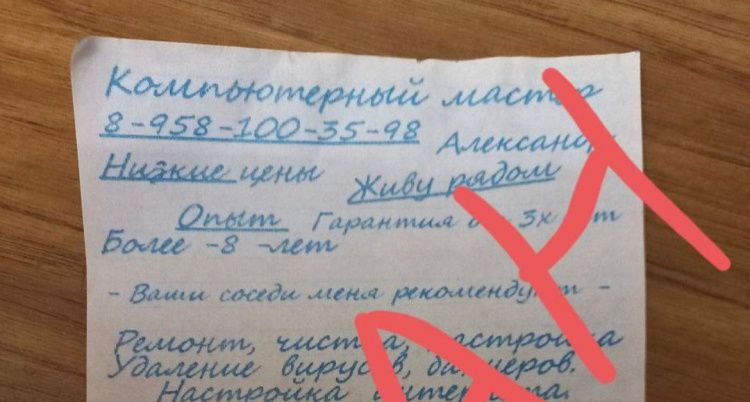 Компьютерный мастер
8-958-100-35-98
Александр
Низкие цены
Живу рядом
Опыт Гарантия до 3х лет
Более -8 -лет
- Ваши соседи меня рекомендуют -
Ремонт, чистка, настройка
Удаление вирусов, баннеров.
Настройка интернета.